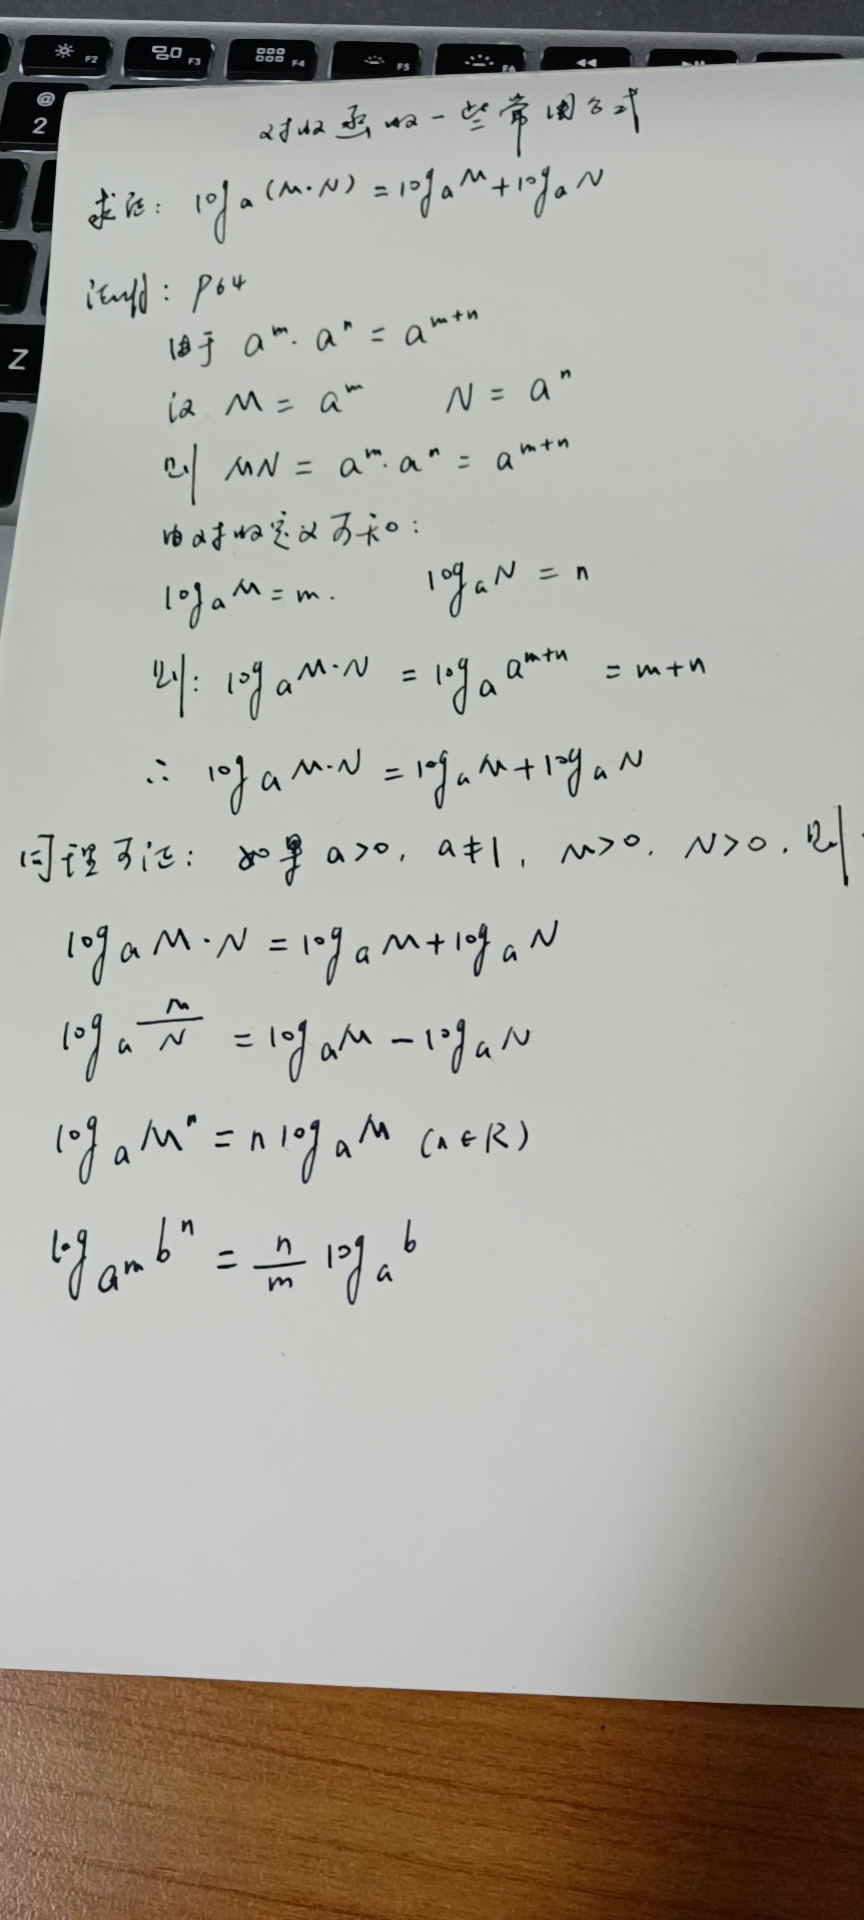 F2 F3 F4 F5 F6
@
2
Z
对数函数一些常用公式
求证: log_a(M·N) = log_a M + log_a N
证明: P64
由于 a^m · a^n = a^{m+n}
设 M = a^m N = a^n
则 MN = a^m · a^n = a^{m+n}
由对数定义可知:
log_a M = m. log_a N = n
则: log_a M·N = log_a a^{m+n} = m+n
∴ log_a M·N = log_a M + log_a N
同理可证: 如果 a>0, a≠1, M>0, N>0, 则
log_a M·N = log_a M + log_a N
log_a M/N = log_a M - log_a N
log_a M^n = n log_a M (n∈R)
log_{a^m} b^n = n/m log_a b